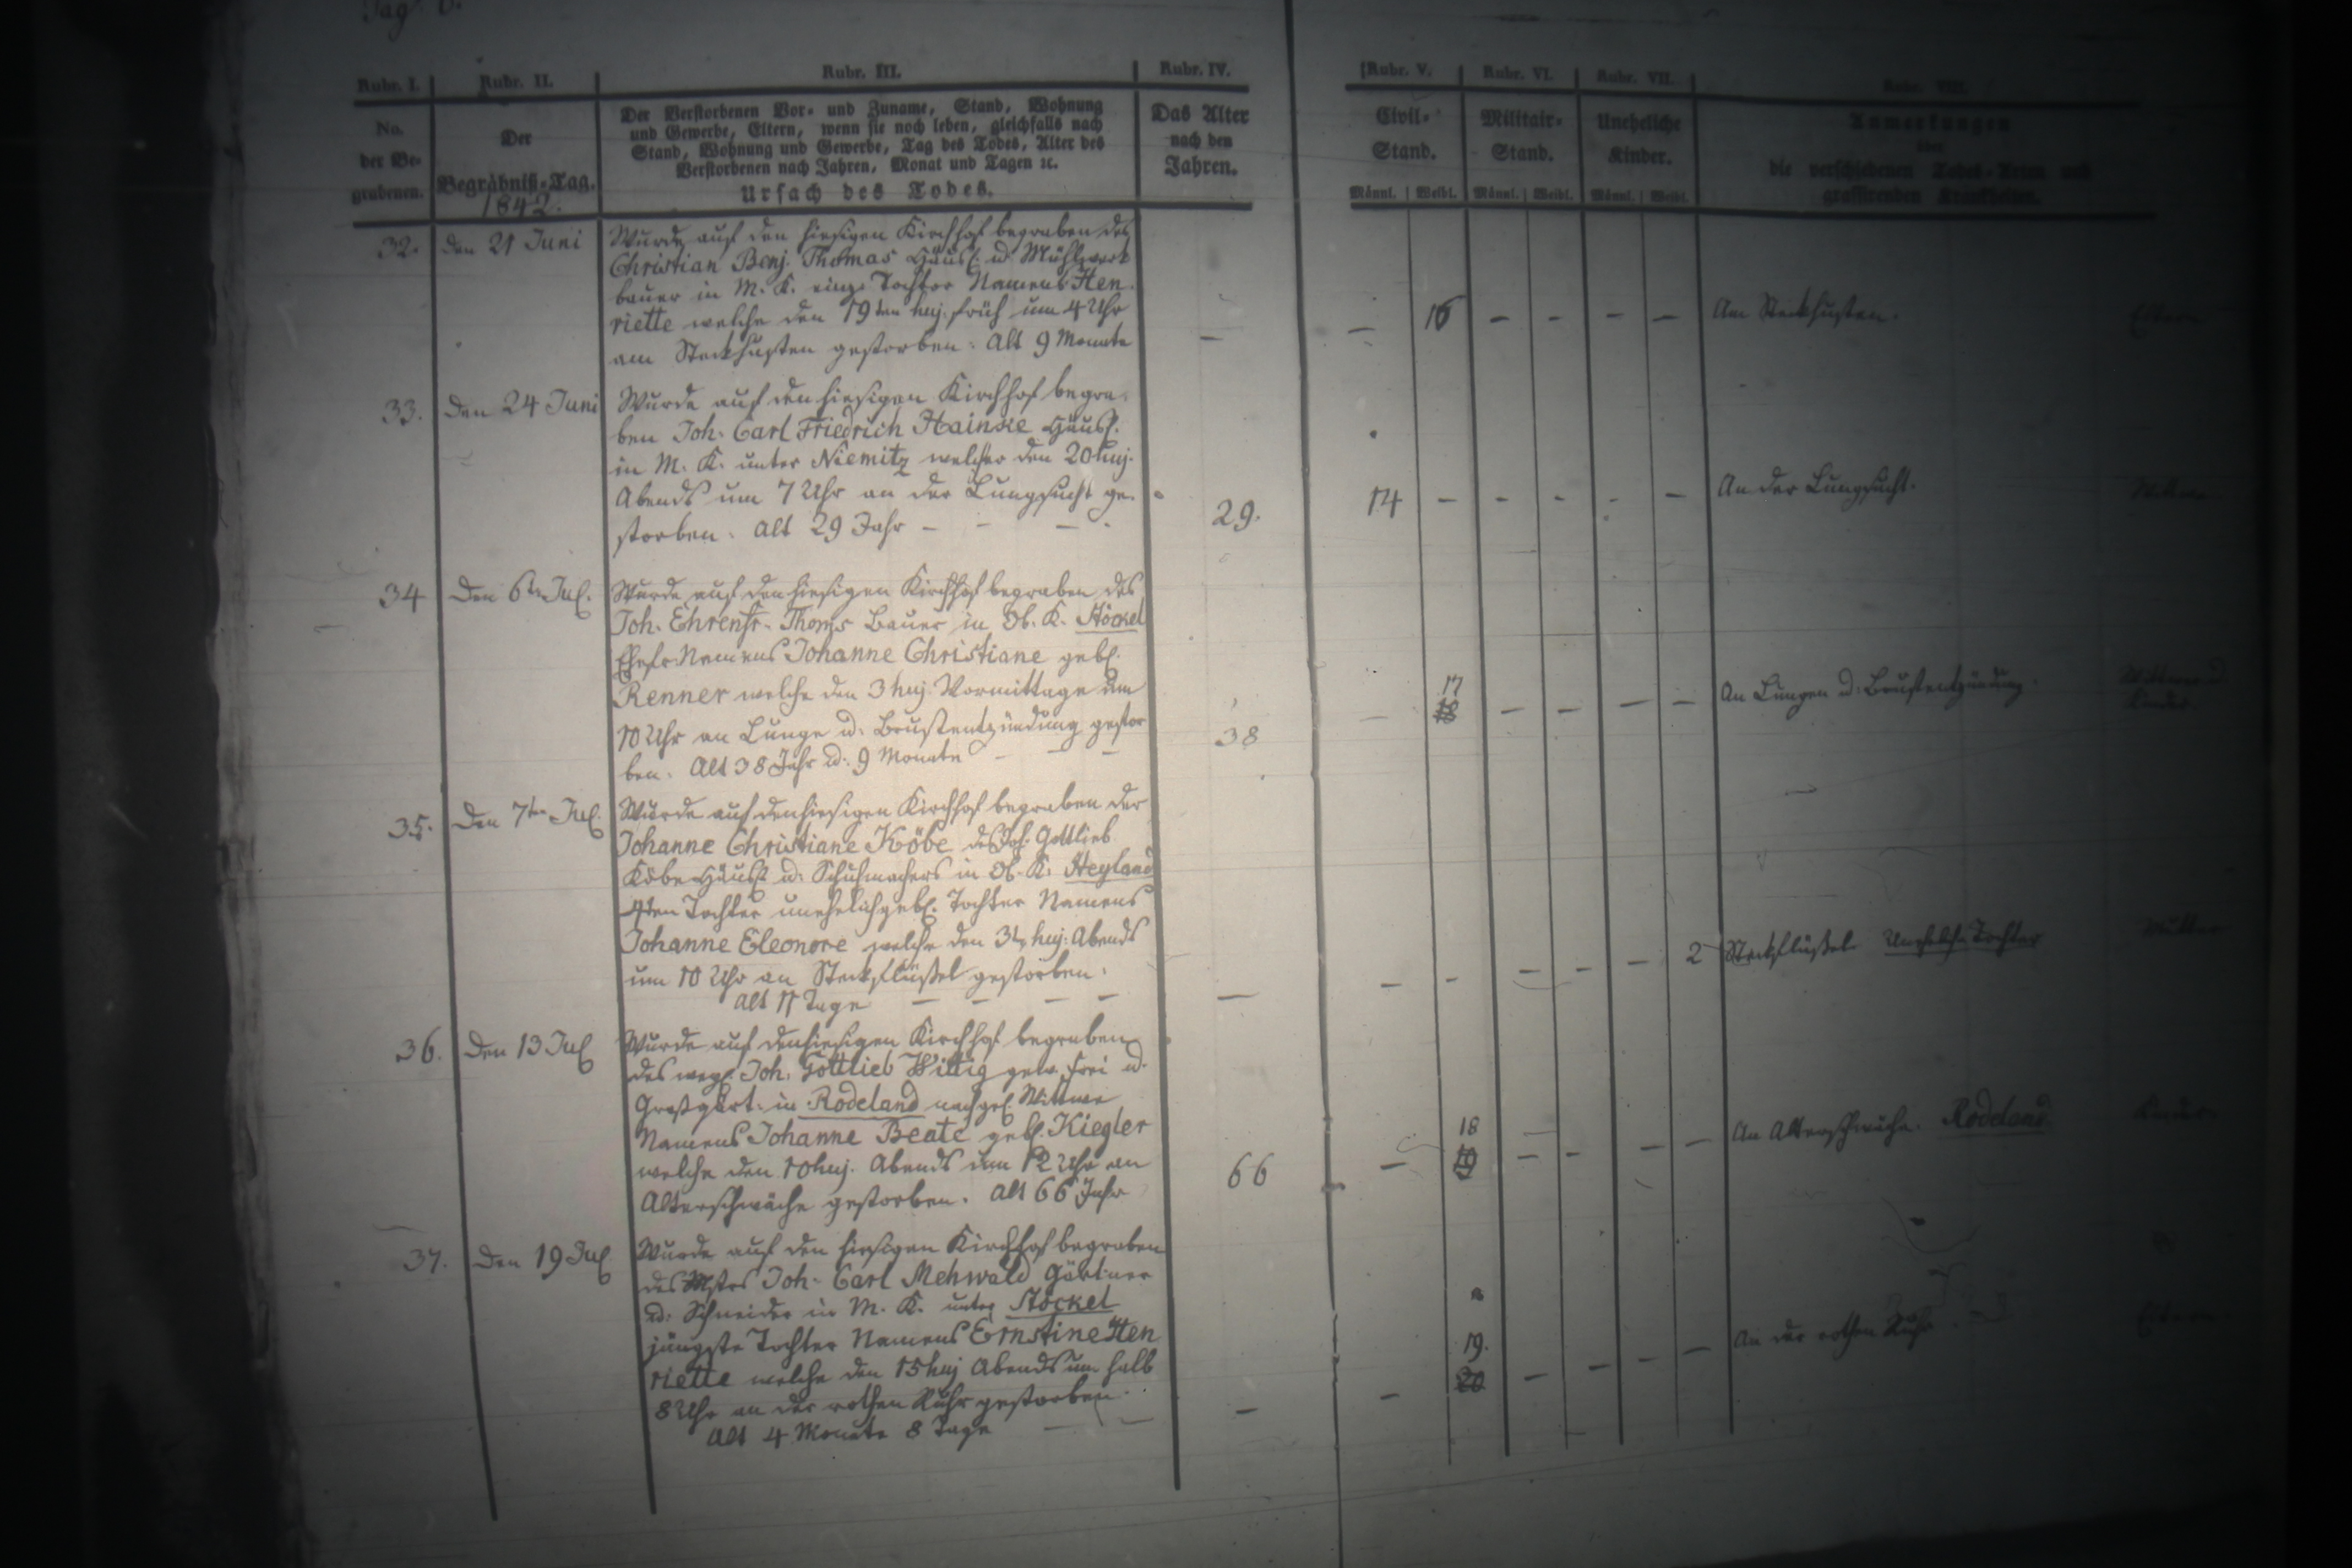 Pag. 6.
Rubr. I. Rubr. II. Rubr. III. Rubr. IV. Rubr. V. Rubr. VI. Rubr. VII. Rubr. VIII.
No. der Be- grabenen.
Der Begräbniß-Tag. 1842.
Der Verstorbenen Vor- und Zuname, Stand, Wohnung
und Gewerbe, Eltern, wenn sie noch leben, gleichfalls nach
Stand, Wohnung und Gewerbe, Tag des Todes, Alter des
Verstorbenen nach Jahren, Monat und Tagen ꝛc.
Ursach des Todes.
Das Alter
nach den
Jahren.
Civil-
Stand.
Männl. Weibl.
Militair-
Stand.
Männl. Weibl.
Uneheliche
Kinder.
Männl. Weibl.
Anmerkungen
über
die verschiedenen Todes-Arten und
grassirenden Krankheiten.
32. den 21 Juni
Wurde auf den hiesigen Kirchhof begraben des
Christian Benj. Thomas Häusl. u. Mühlwerk
bauer in M. K. einz. Tochter Namens Hen
riette welche den 19ten huj. früh um 4 Uhr
am Steckhusten gestorben. Alt 9 Monate
– – 16 – – – – Am Steckhusten. Eltern
33. Den 24 Juni
Wurde auf den hiesigen Kirchhof begra-
ben Joh. Carl Friedrich Hainke Häusl.
in M. K. unter Niemitz welcher den 20 huj.
Abends um 7 Uhr an der Lungsucht ge-
storben. Alt 29 Jahr – – –
29. 14 – – – – – An der Lungsucht.
34 Den 6ten Jul.
Wurde auf den hiesigen Kirchhof begraben des
Joh. Ehrenfr. Thoms Bauer in Ob. K. Stöckel
Ehefr. Namens Johanne Christiane geb.
Renner welche den 3 huj. Vormittage um
10 Uhr an Lunge u. Brustentzündung gestor
ben. Alt 38 Jahr u. 9 Monate – – –
38 – 17 18 – – – – An Lungen u. Brustentzündung. Wittwer u.
Kinder
35. Den 7ten Jul.
Wurde auf den hiesigen Kirchhof begraben der
Johanne Christiane Köbe des Joh. Gottlieb
Köbe Häusl. u. Schuhmachers in Ob. K. Heyland
4ten Tochter unehelich geb. Tochter Namens
Johanne Eleonore welche den 3t. huj. Abends
um 10 Uhr an Steckflüßel gestorben.
Alt 17 Tage – – – –
– – – – – – 2 Steckflüßel Uneheliche Tochter Mutter
36. Den 13 Jul
Wurde auf den hiesigen Kirchhof begraben
des weyl. Joh. Gottlieb Wittig gew. Frei u.
Großgärt. in Rodeland nachgel. Wittwe
Namens Johanne Beate geb. Kiegler
welche den 10 huj. Abends um 12 Uhr an
Alterschwäche gestorben. Alt 66 Jahr
66 – 18 19 – – – – An Alterschwäche. Rodeland. Kinder
37. Den 19 Jul
Wurde auf den hiesigen Kirchhof begraben
des Mstrs Joh. Carl Mehwald Gärtner
u. Schneider in M. K. unter Stöckel
jüngste Tochter Namens Ernstine Hen
riette welche den 15 huj Abends um halb
8 Uhr an der rothen Ruhr gestorben.
Alt 4 Monate 8 Tage – –
– – 19. 20 – – – – An der rothen Ruhr. Eltern